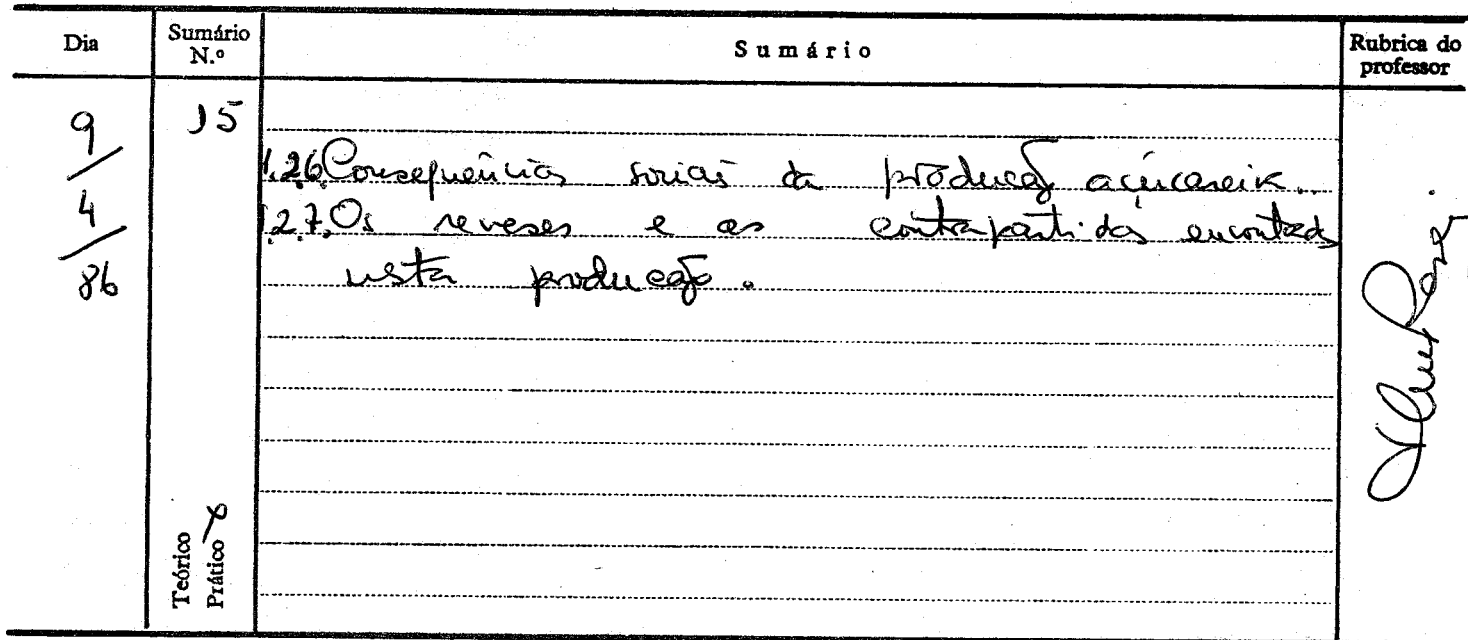 Dia Sumário N.º Sumário Rubrica do professor
9/4/86 15
1.2.6. Consequências sociais da produção açucareira.
1.2.7. Os reveses e as contrapartidas encontradas
nesta produção.
Teórico
Prático x